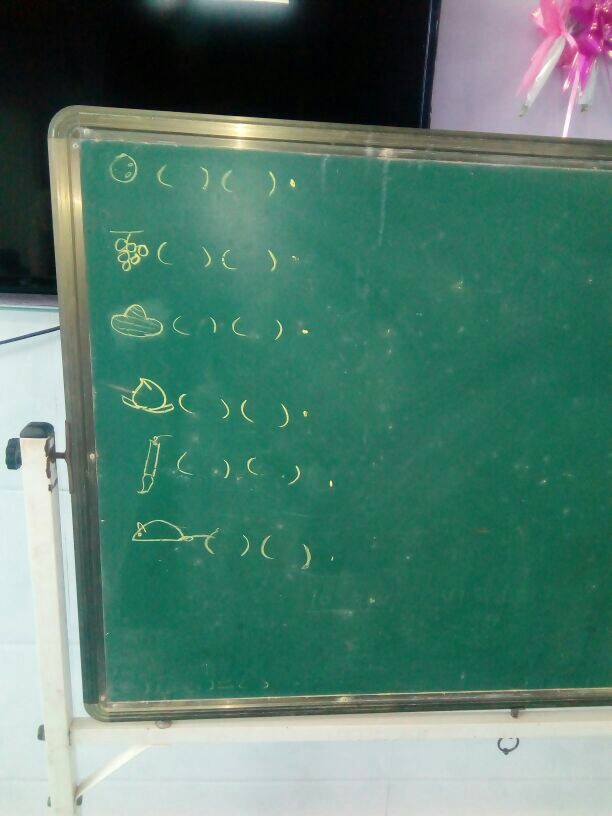 ( ) ( ) .
( ) ( ) .
( ) ( ) .
( ) ( ) .
( ) ( ) .
( ) ( ) .